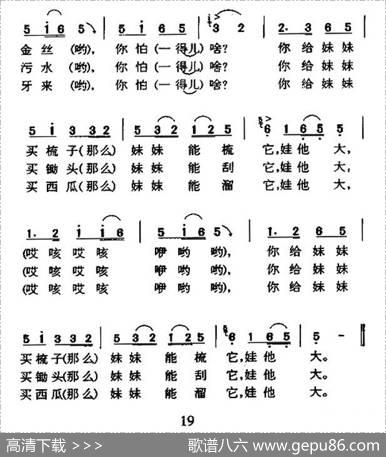 5 i 6 5 | 5 i 6 5 | 3 2 | 2. 3 6 5 |
金 丝 (哟), 你 怕 (一 得儿) 啥? 你 给 妹 妹
污 水 (哟), 你 怕 (一 得儿) 啥? 你 给 妹 妹
牙 来 (哟), 你 怕 (一 得儿) 啥? 你 给 妹 妹
5 i 3 3 2 | 5 3 2 1 2 5 | 6 1 6 5 5 |
买 梳 子(那 么) 妹 妹 能 梳 它,娃 他 大,
买 锄 头(那 么) 妹 妹 能 刮 它,娃 他 大,
买 西 瓜(那 么) 妹 妹 能 溜 它,娃 他 大,
1. 2 i i 6 | 5 i 6 5 | 1. 2 6 5 |
(哎 咳 哎 咳 咿 哟 哟), 你 给 妹 妹
(哎 咳 哎 咳 咿 哟 哟), 你 给 妹 妹
(哎 咳 哎 咳 咿 哟 哟), 你 给 妹 妹
5 i 3 3 2 | 5 3 2 1 2 5 | 6 1 6 5 | 5 - ‖
买 梳 子(那 么) 妹 妹 能 梳 它,娃 他 大。
买 锄 头(那 么) 妹 妹 能 刮 它,娃 他 大。
买 西 瓜(那 么) 妹 妹 能 溜 它,娃 他 大。
19
高清下载 >>> 歌谱八六 www.gepu86.com